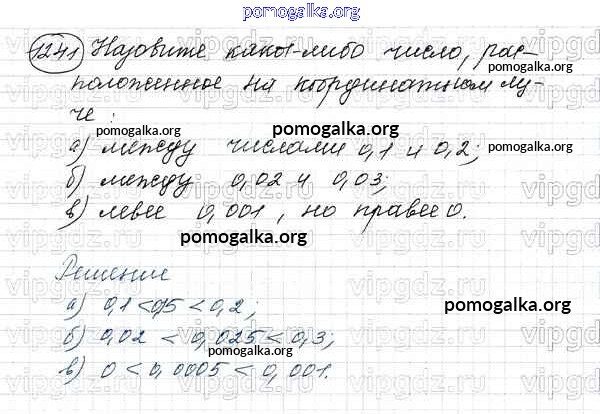 pomogalka.org
1241 Назовите какое-либо число, рас-
pomogalka.org
положенное на координатном лу-
че:
pomogalka.org
а) между числами 0,1 и 0,2;
pomogalka.org
б) между 0,02 и 0,03;
в) левее 0,001, но правее 0.
pomogalka.org
Решение
а) 0,1 < 0,15 < 0,2;
pomogalka.org
б) 0,02 < 0,025 < 0,3;
pomogalka.org
в) 0 < 0,0005 < 0,001.
vipgdz.ru vipgdz.ru vipgdz.ru